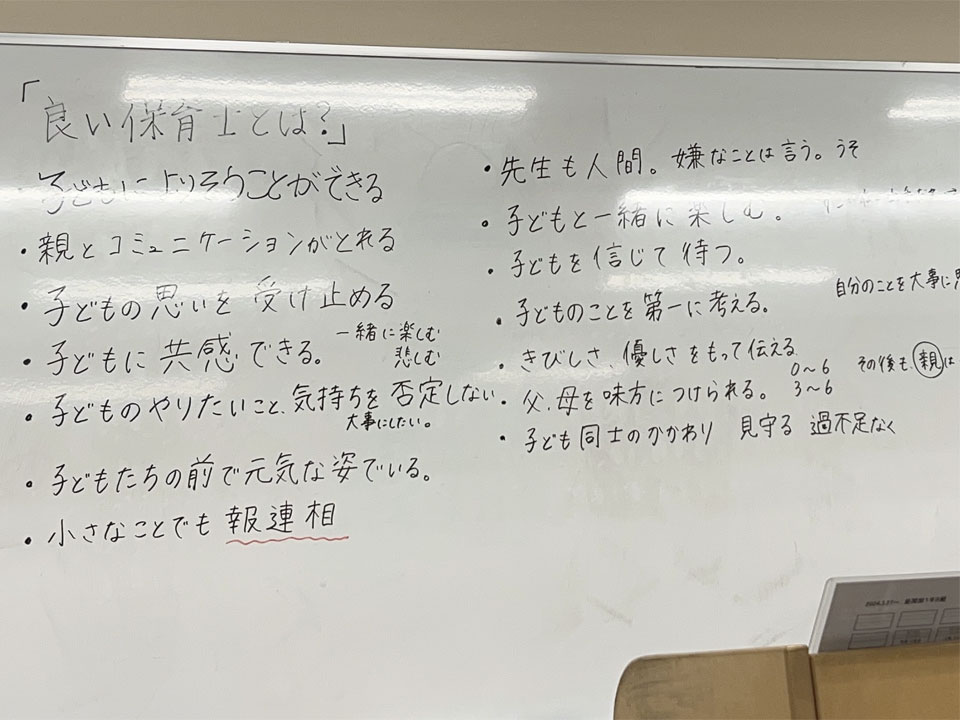 「良い保育士とは?」
子どもによりそうことができる
・親とコミュニケーションがとれる
・子どもの思いを受け止める
・子どもに共感できる。
一緒に楽しむ
悲しむ
・子どものやりたいこと、気持ちを否定しない
大事にしたい。
・子どもたちの前で元気な姿でいる。
・小さなことでも報連相
・先生も人間。嫌なことは言う。うそ
・子どもと一緒に楽しむ。
・子どもを信じて待つ。
自分のことを大事に
・子どものことを第一に考える。
・きびしさ、優しさをもって伝える
0〜6
3〜6
その後も、親は
・父、母を味方につけられる。
・子ども同士のかかわり 見守る 過不足なく